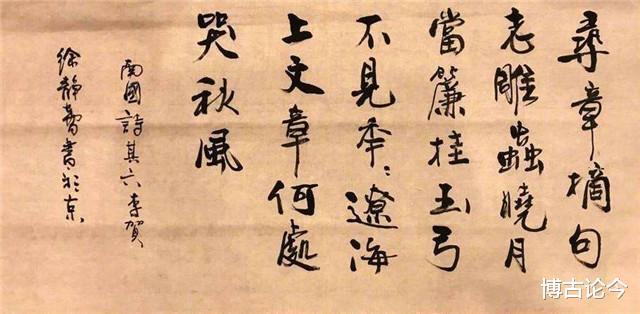 尋章摘句
老雕蟲曉月
當簾挂玉弓
不見年〻遼海
上文章何處
哭秋風
南國詩其六李賀
徐靜書於京
博古论今